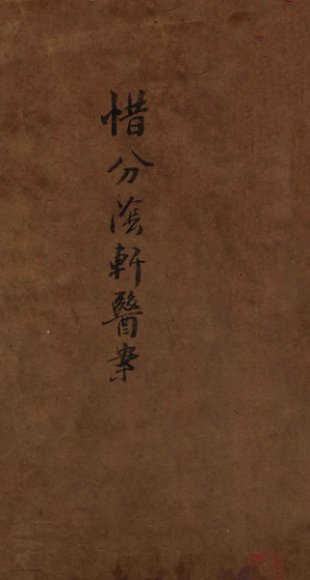 惜分陰軒醫案